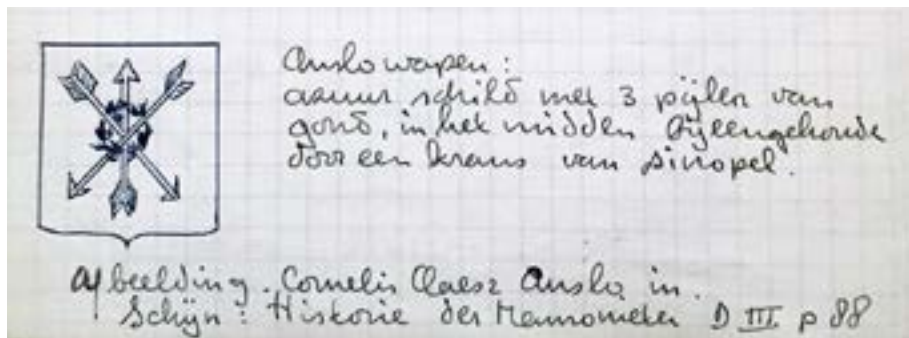 Anslo wapen:
azuur schild met 3 pijlen van
goud, in het midden bijeengehoude
door een krans van sinopel.
afbeelding. Cornelis Claesz Anslo in.
Schijn: Historie der Mennometen D III p 88